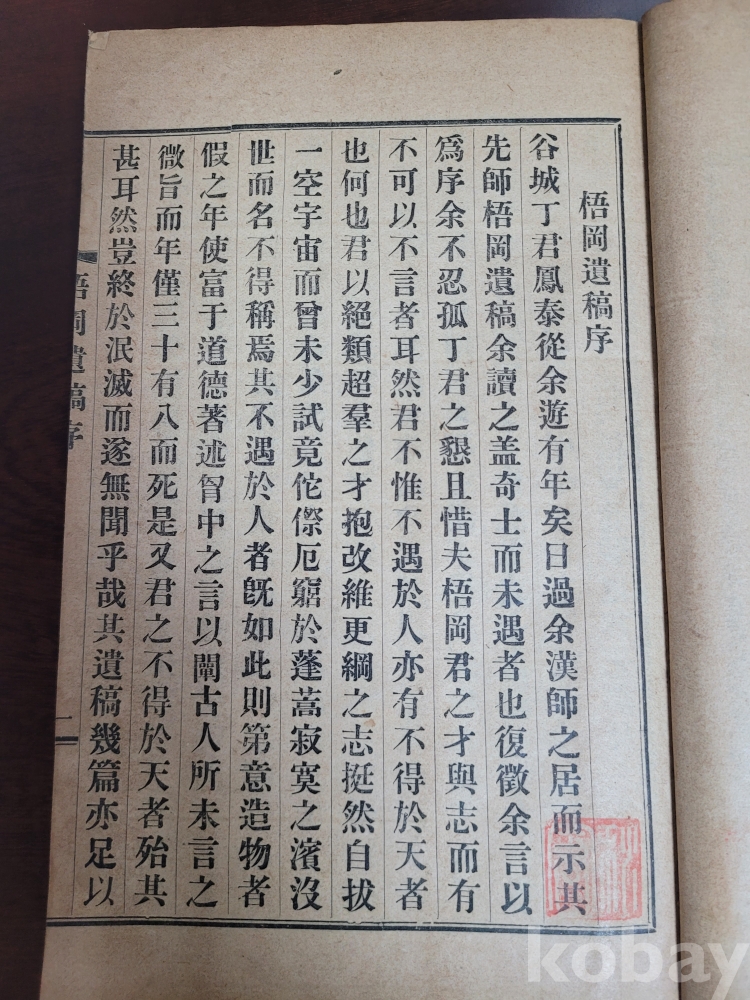 梧岡遺稿序
谷城丁君鳳泰從余遊有年矣日過余漢師之居而示其
先師梧岡遺稿余讀之盖奇士而未遇者也復徵余言以
爲序余不忍孤丁君之懇且惜夫梧岡君之才與志而有
不可以不言者耳然君不惟不遇於人亦有不得於天者
也何也君以絕類超羣之才抱改維更綱之志挺然自拔
一空宇宙而曾未少試竟佗傺厄窮於蓬蒿寂寞之濱沒
世而名不得稱焉其不遇於人者旣如此則第意造物者
假之年使富于道德著述胷中之言以闡古人所未言之
微旨而年僅三十有八而死是又君之不得於天者殆其
甚耳然豈終於泯滅而遂無聞乎哉其遺稿幾篇亦足以
梧岡遺稿序
kobay